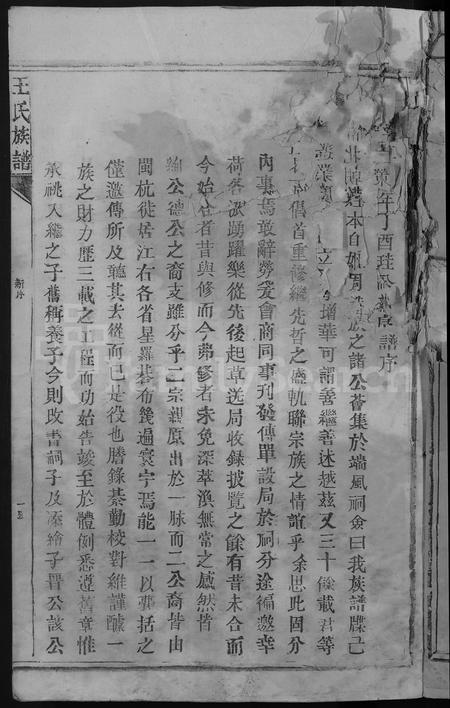 年丁酉珪公載卓譜序
族之諸公薈集於端風祠僉曰我族譜牒已
增華可謂善繼善述越茲又三十餘載君等
倡首重修繼先哲之盛軌聯宗族之情誼乎余思此固分
內事焉敢辭勞爰會商同事刊發傳單設局於祠分途徧邀幸
荷各派踴躍樂從先後起草洗局收録披覽之餘有昔未合而
今始合者昔與修而今弗修者未免深萃渙無常之感然皆
公德公之裔支雖分乎二宗親原出於一脉而二公裔皆由
閩杭徙居江右各省星羅碁布幾遍寰宇焉能一一以彙括之
僅邀傳所及聽其去從而已是役也謄錄綦勤校對維謹釀一
族之財力歷三載之工程而功始告竣至於體例悉遵舊章惟
承祧入繼之子舊稱養子今則改書嗣子及添繪子晋公該公
王氏族譜
新序
一五